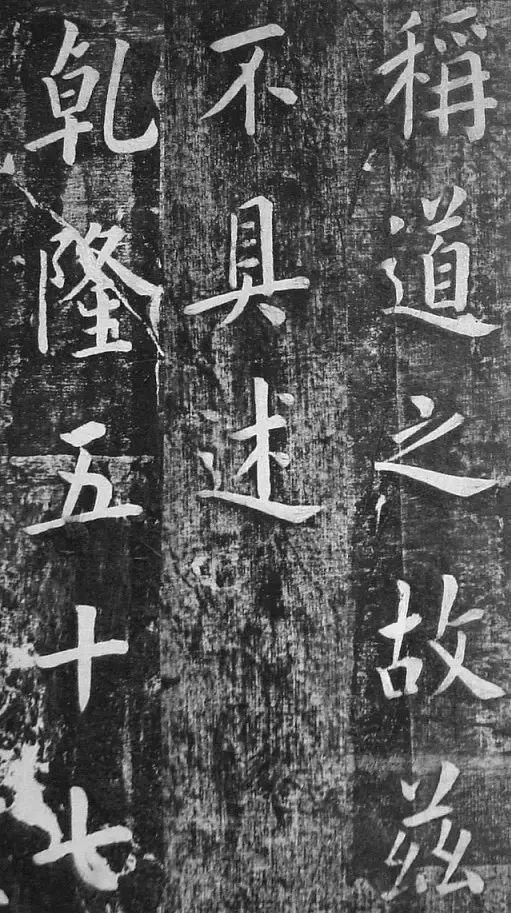 稱道之故茲
不具述
乹隆五十七